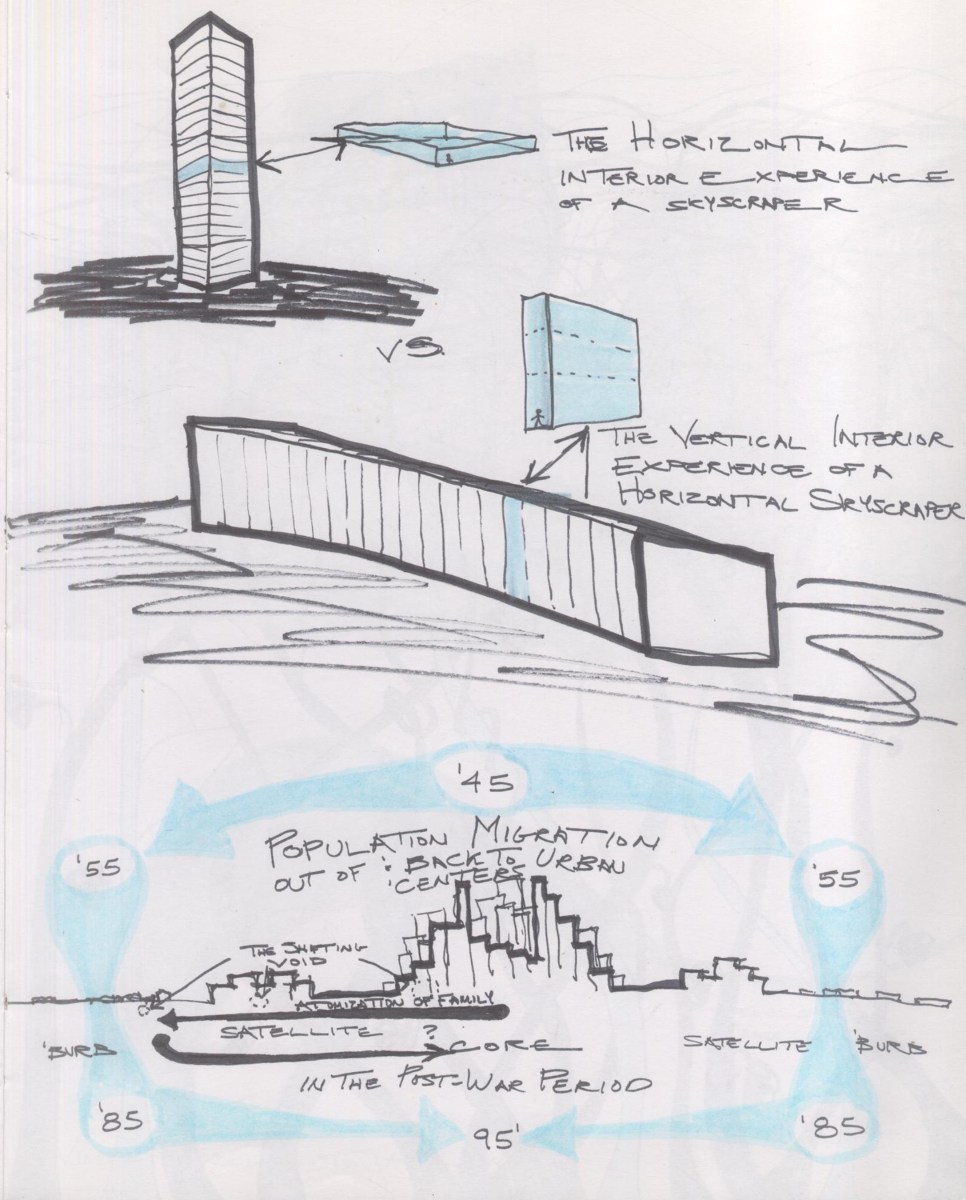 THE HORIZONTAL
INTERIOR EXPERIENCE
OF A SKYSCRAPER
VS.
THE VERTICAL INTERIOR
EXPERIENCE OF A
HORIZONTAL SKYSCRAPER
'45
POPULATION MIGRATION
OUT OF : BACK TO URBAN
CENTERS
'55
'55
THE SHIFTING
VOID
ATOMIZATION OF FAMILY
SATELLITE
?
CORE
SATELLITE
'BURB
'BURB
IN THE POST-WAR PERIOD
'85
95'
'85